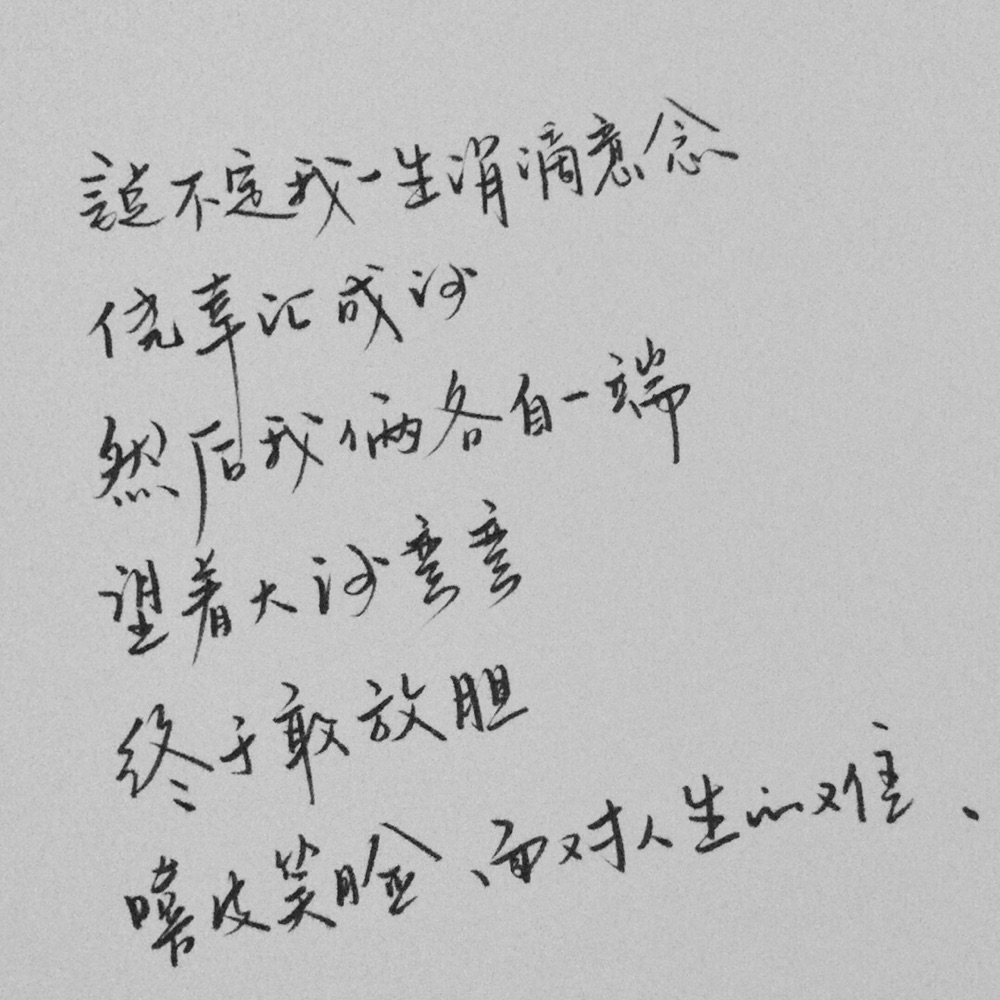 說不定我一生涓滴意念
侥幸汇成河
然后我俩各自一端
望着大河弯弯
终于敢放胆
嘻皮笑脸、面对人生的难、